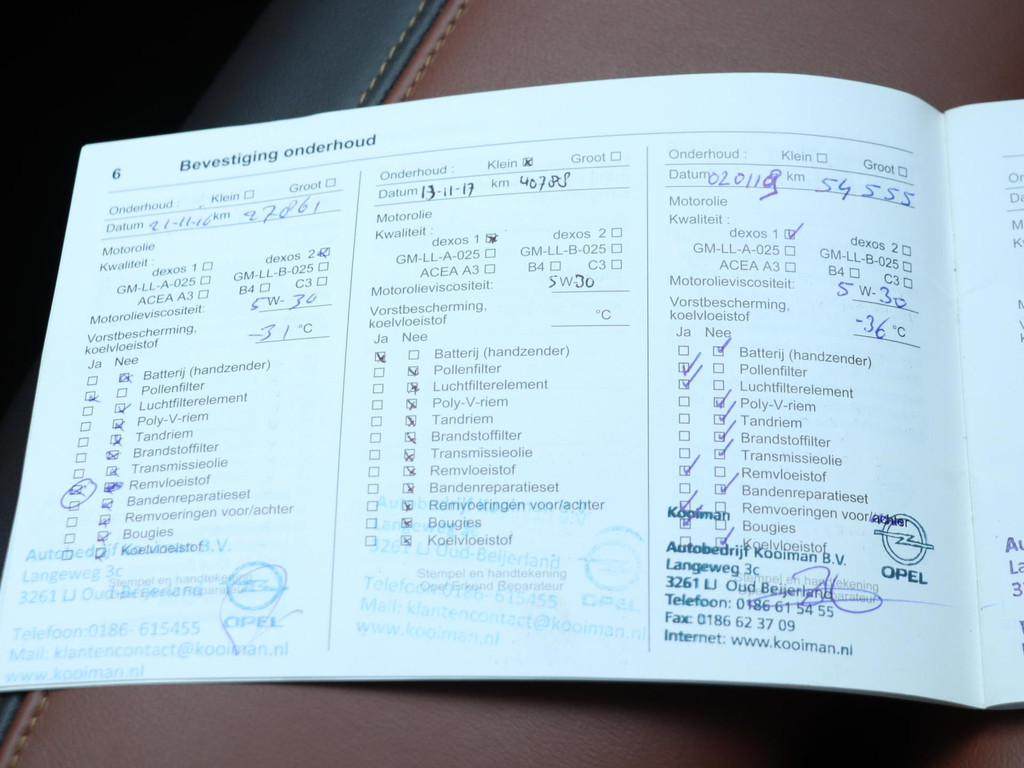 6 Bevestiging onderhoud
Onderhoud : Klein Groot
Datum 21-11-16 km 27861
Motorolie
Kwaliteit :
dexos 1 dexos 2
GM-LL-A-025 GM-LL-B-025
ACEA A3 B4 C3
Motorolieviscositeit: 5 W- 30
Vorstbescherming,
koelvloeistof -31 °C
Ja Nee
Batterij (handzender)
Pollenfilter
Luchtfilterelement
Poly-V-riem
Tandriem
Brandstoffilter
Transmissieolie
Remvloeistof
Bandenreparatieset
Remvoeringen voor/achter
Bougies
Koelvloeistof
Autobedrijf Kooiman B.V.
Langeweg 3c
Stempel en handtekening
3261 LJ Oud-Beijerland
OPEL
Telefoon:0186- 615455
Mail: klantencontact@kooiman.nl
www.kooiman.nl
Onderhoud : Klein Groot
Datum 13-11-17 km 40788
Motorolie
Kwaliteit :
dexos 1 dexos 2
GM-LL-A-025 GM-LL-B-025
ACEA A3 B4 C3
Motorolieviscositeit: 5W-30
Vorstbescherming,
koelvloeistof °C
Ja Nee
Batterij (handzender)
Pollenfilter
Luchtfilterelement
Poly-V-riem
Tandriem
Brandstoffilter
Transmissieolie
Remvloeistof
Bandenreparatieset
Remvoeringen voor/achter
Bougies
Koelvloeistof
3261 LJ Oud-Beijerland
Stempel en handtekening
Opel Erkend Reparateur
Telefoon:0186-615455
Mail: klantencontact@kooiman.nl
www.kooiman.nl
Onderhoud : Klein Groot
Datum 020119 km 54 555
Motorolie
Kwaliteit :
dexos 1 dexos 2
GM-LL-A-025 GM-LL-B-025
ACEA A3 B4 C3
Motorolieviscositeit: 5 W-30
Vorstbescherming,
koelvloeistof -36 °C
Ja Nee
Batterij (handzender)
Pollenfilter
Luchtfilterelement
Poly-V-riem
Tandriem
Brandstoffilter
Transmissieolie
Remvloeistof
Bandenreparatieset
Remvoeringen voor/achter
Bougies
Koelvloeistof
Kooiman
Autobedrijf Kooiman B.V.
Langeweg 3c
OPEL
Stempel en handtekening
3261 LJ Oud Beijerland
Telefoon: 0186 61 54 55
Fax: 0186 62 37 09
Internet: www.kooiman.nl